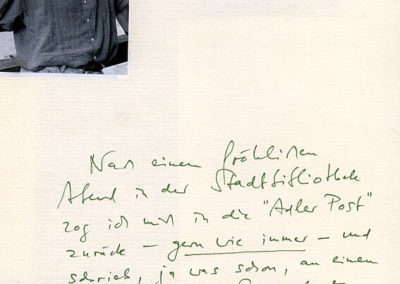 Nach einem fröhlichen
Abend in der Stadtbibliothek
zog ich mich in die "Adler Post"
zurück – gern wie immer – und
schrieb, ja was schon, an einem